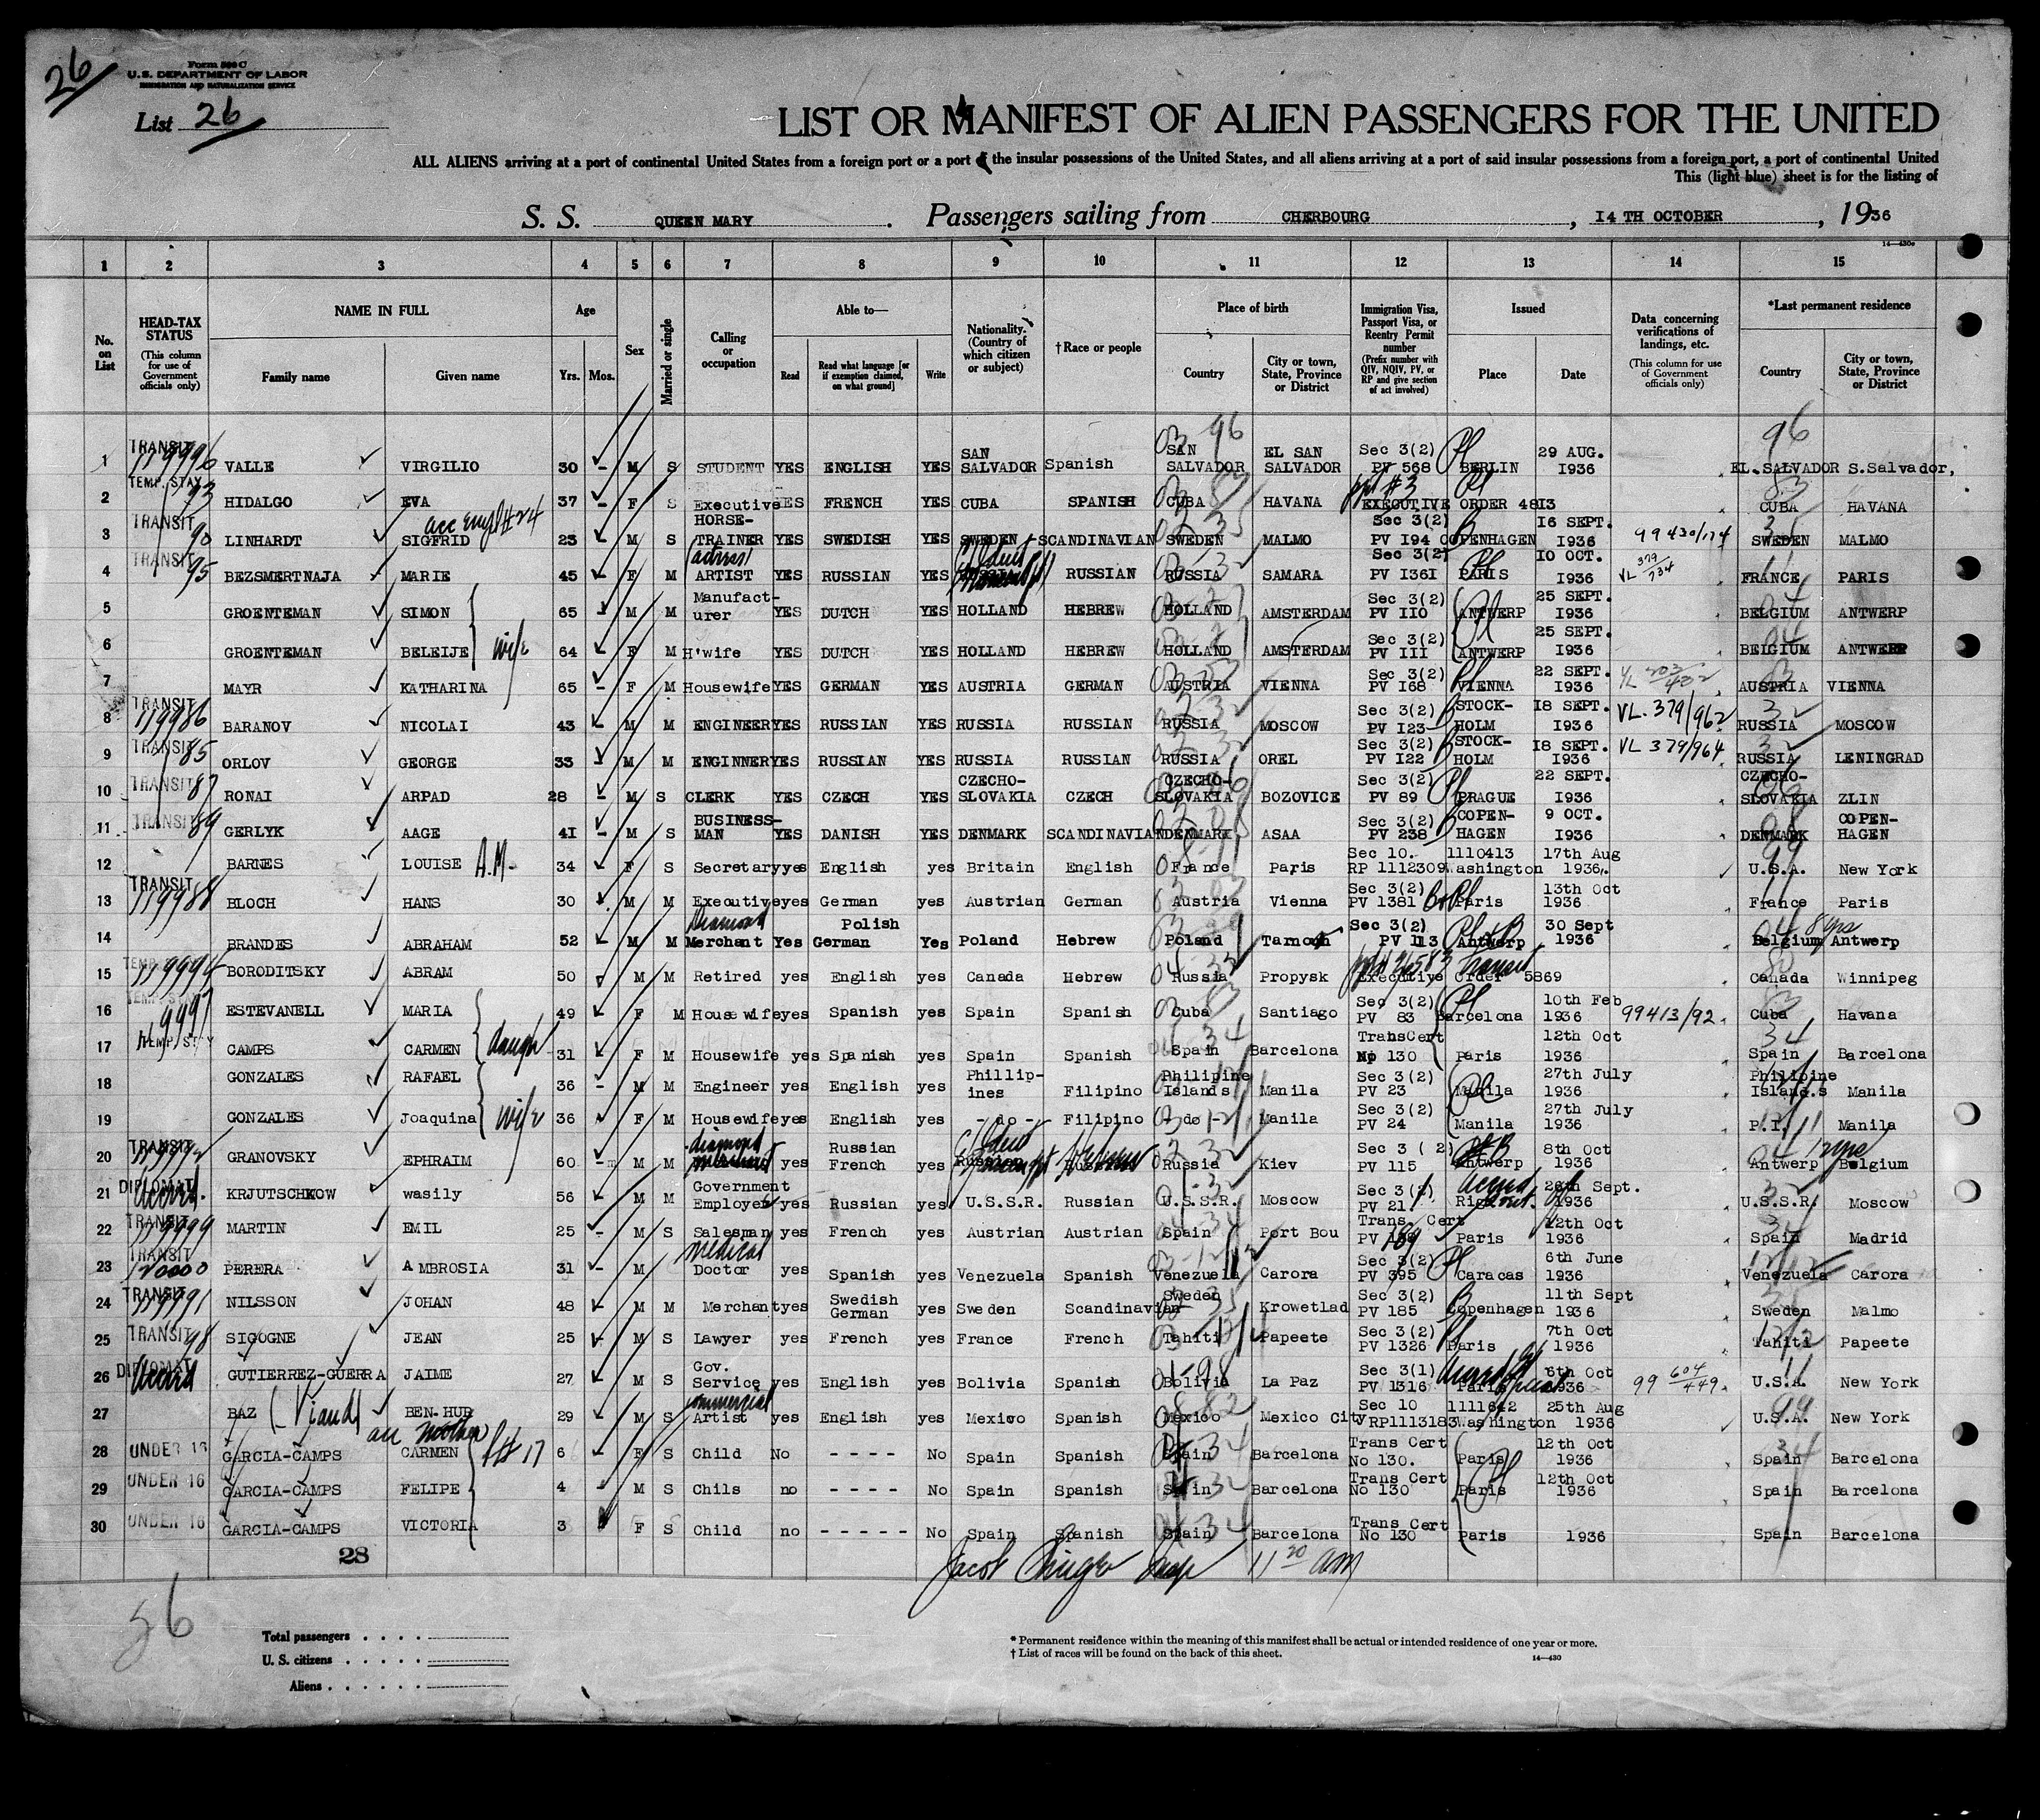 26
Form 500 C
U.S. DEPARTMENT OF LABOR
IMMIGRATION AND NATURALIZATION SERVICE
List 26
LIST OR MANIFEST OF ALIEN PASSENGERS FOR THE UNITED
ALL ALIENS arriving at a port of continental United States from a foreign port or a port of the insular possessions of the United States, and all aliens arriving at a port of said insular possessions from a foreign port, a port of continental United
This (light blue) sheet is for the listing of
S. S. QUEEN MARY. Passengers sailing from CHERBOURG, 14 TH OCTOBER, 1936
14—430c
1 2 3 4 5 6 7 8 9 10 11 12 13 14 15
No. on List
HEAD-TAX STATUS (This column for use of Government officials only)
NAME IN FULL Family name Given name
Age Yrs. Mos.
Sex
Married or single
Calling or occupation
Able to— Read Read what language [or if exemption claimed, on what ground] Write
Nationality. (Country of which citizen or subject)
†Race or people
Place of birth Country City or town, State, Province or District
Immigration Visa, Passport Visa, or Reentry Permit number (Prefix number with QIV, NQIV, PV, or RP and give section of act involved)
Issued Place Date
Data concerning verifications of landings, etc. (This column for use of Government officials only)
*Last permanent residence Country City or town, State, Province or District
1 TRANSIT 119996 VALLE VIRGILIO 30 - M S STUDENT YES ENGLISH YES SAN SALVADOR Spanish SAN SALVADOR EL SAN SALVADOR Sec 3(2) PV 568 BERLIN 29 AUG. I936 EL.SALVADOR S.Salvador,
2 TEMP. STAY 93 HIDALGO EVA 37 - F S Executive YES FRENCH YES CUBA SPANISH CUBA HAVANA ppt #3 EXECUTIVE ORDER 48I3 CUBA HAVANA
3 TRANSIT 90 LINHARDT SIGFRID acc empl #24 23 M S HORSE-TRAINER YES SWEDISH YES SWEDEN SCANDINAVIAN SWEDEN MALMO Sec 3(2) PV I94 COPENHAGEN I6 SEPT. I936 99430/174 SWEDEN MALMO
4 TRANSIT 95 BEZSMERTNAJA MARIE 45 F M (actress) ARTIST YES RUSSIAN YES RUSSIAN RUSSIA SAMARA Sec 3(2) PV I36I PARIS IO OCT. I936 VL 379/734 FRANCE PARIS
5 GROENTEMAN SIMON 65 M M Manufacturer YES DUTCH YES HOLLAND HEBREW HOLLAND AMSTERDAM Sec 3(2) PV IIO ANTWERP 25 SEPT. I936 BELGIUM ANTWERP
6 GROENTEMAN BELEIJE wife 64 F M H'wife YES DUTCH YES HOLLAND HEBREW HOLLAND AMSTERDAM Sec 3(2) PV III ANTWERP 25 SEPT. I936 BELGIUM ANTWERP
7 MAYR KATHARINA 65 - F M Housewife YES GERMAN YES AUSTRIA GERMAN AUSTRIA VIENNA Sec 3(2) PV I68 VIENNA 22 SEPT. I936 AUSTRIA VIENNA
8 TRANSIT 119986 BARANOV NICOLAI 43 M M ENGINEER YES RUSSIAN YES RUSSIA RUSSIAN RUSSIA MOSCOW Sec 3(2) PV I23 STOCK-HOLM I8 SEPT. I936 VL.379/962 RUSSIA MOSCOW
9 TRANSIT 85 ORLOV GEORGE 33 M M ENGINNER YES RUSSIAN YES RUSSIA RUSSIAN RUSSIA OREL Sec 3(2) PV I22 STOCK-HOLM I8 SEPT. I936 VL 379/964 RUSSIA LENINGRAD
10 TRANSIT 87 RONAI ARPAD 28 - M S CLERK YES CZECH YES CZECHO-SLOVAKIA CZECH CZECHO-SLOVAKIA BOZOVICE Sec 3(2) PV 89 PRAGUE 22 SEPT. I936 CZECHO-SLOVAKIA ZLIN
11 TRANSIT 89 GERLYK AAGE 4I - M S BUSINESS-MAN YES DANISH YES DENMARK SCANDINAVIAN DENMARK ASAA Sec 3(2) PV 238 COPEN-HAGEN 9 OCT. I936 DENMARK COPEN-HAGEN
12 BARNES LOUISE A.M. 34 F S Secretary yes English yes Britain English France Paris Sec 10. RP 1112309 1110413 Washington 17th Aug 1936. U.S.A. New York
13 TRANSIT 119988 BLOCH HANS 30 M M Executive yes German yes Austrian German Austria Vienna Sec 3(2) PV 1381 Paris 13th Oct 1936 France Paris
14 BRANDES ABRAHAM 52 - M M Diamond Merchant Yes Polish German Yes Poland Hebrew Poland Tarnow Sec 3(2) PV 113 Antwerp 30 Sept 1936 8 yrs Belgium Antwerp
15 119994 BORODITSKY ABRAM 50 M M Retired yes English yes Canada Hebrew Russia Propysk Executive Order 5869 Transit Canada Winnipeg
16 TEMP. STAY 9997 ESTEVANELL MARIA 49 F M House wife yes Spanish yes Spain Spanish Cuba Santiago Sec 3(2) PV 83 Barcelona 10th Feb 1936 99413/92 Cuba Havana
17 TEMP. STY CAMPS CARMEN daugh 31 F M Housewife yes Spanish yes Spain Spanish Spain Barcelona TransCert No 130 Paris 12th Oct 1936 Spain Barcelona
18 GONZALES RAFAEL 36 - M M Engineer yes English yes Phillip-ines Filipino Philipine Islands Manila Sec 3(2) PV 23 Manila 27th July 1936 Philipine Islands Manila
19 GONZALES Joaquina wife 36 F M Housewife yes English yes - do - Filipino - do - Manila Sec 3(2) PV 24 Manila 27th July 1936 P.I. Manila
20 TRANSIT GRANOVSKY EPHRAIM 60 M M diamond yes Russian French yes Hebrew Russia Kiev Sec 3 ( 2) PV 115 Antwerp 8th Oct 1936 12 yrs Antwerp Belgium
21 DIPLOMAT KRJUTSCHKOW wasily 56 M M Government Employee yes Russian yes U.S.S.R. Russian U.S.S.R. Moscow Sec 3(2) PV 21 Riga 26th Sept. 1936 U.S.S.R. Moscow
22 TRANSIT 119999 MARTIN EMIL 25 - M S Salesman yes French yes Austrian Austrian Spain Port Bou Trans. Cert PV 189 Paris 12th Oct 1936 Spain Madrid
23 TRANSIT 120000 PERERA AMBROSIA 31 - M Medical Doctor yes Spanish yes Venezuela Spanish Venezuela Carora Sec 3(2) PV 395 Caracas 6th June 1936 Venezuela Carora
24 TRANSIT 119991 NILSSON JOHAN 48 M M Merchant yes Swedish German yes Sweden Scandinavian Sweden Krowetlad Sec 3(2) PV 185 Copenhagen 11th Sept 1936 Sweden Malmo
25 TRANSIT 98 SIGOGNE JEAN 25 M S Lawyer yes French yes France French Tahiti Papeete Sec 3(2) PV 1326 Paris 7th Oct 1936 Tahiti Papeete
26 DIPLOMAT GUTIERREZ-GUERRA JAIME 27 M S Gov. Service yes English yes Bolivia Spanish Bolivia La Paz Sec 3(1) PV 1316 Paris 6th Oct 1936 99 604/449 U.S.A. New York
27 BAZ (-Viaud) BEN-HUR 29 M S commercial Artist yes English yes Mexico Spanish Mexico Mexico City Sec 10 RP1113183 1111642 Washington 25th Aug 1936 U.S.A. New York
acc mother #17
28 UNDER 16 GARCIA-CAMPS CARMEN 6 F S Child No - - - - No Spain Spanish Spain Barcelona Trans Cert No 130. Paris 12th Oct 1936 Spain Barcelona
29 UNDER 16 GARCIA-CAMPS FELIPE 4 M S Chils no - - - - No Spain Spanish Spain Barcelona Trans Cert No 130 Paris 12th Oct 1936 Spain Barcelona
30 UNDER 16 GARCIA-CAMPS VICTORIA 3 F S Child no - - - - - No Spain Spanish Spain Barcelona Trans Cert No 130 Paris 1936 Spain Barcelona
28
Jacob 11 20 am
56
Total passengers . . . .
U. S. citizens . . . . .
Aliens . . . . . .
* Permanent residence within the meaning of this manifest shall be actual or intended residence of one year or more.
† List of races will be found on the back of this sheet.
14—430